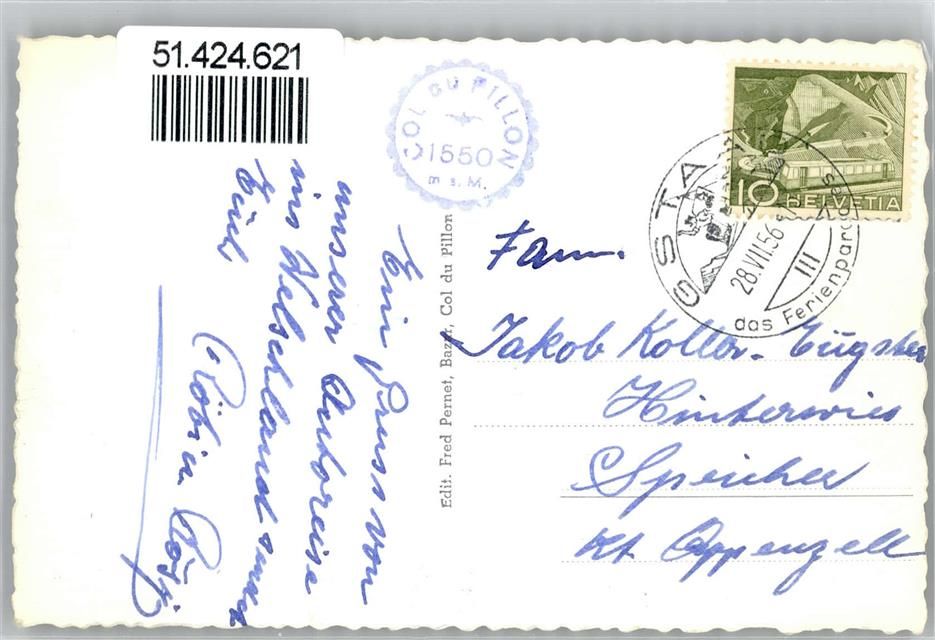 51.424.621
COL DU PILLON
1550
m s. M.
10 HELVETIA
GSTAAD
28.VII.56
III
das Ferienparadies
Edit. Fred Pernet, Bazar, Col du Pillon
Ein Gruss von
unserer Autoreise
ins Welschland
Euch
Fam.
Jakob Koller-Eugster
Hinterwies
Speicher
Kt Appenzell